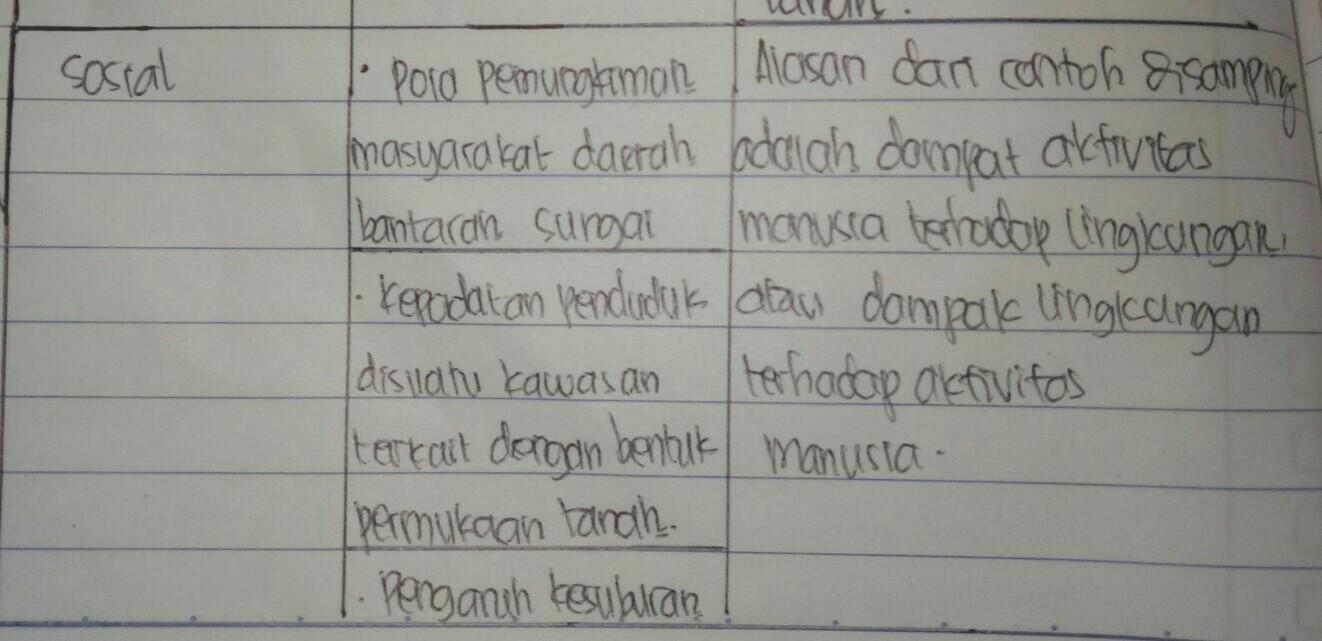 tanah.
sosial
• Pola pemungkiman
masyarakat daerah
bantaran sungai
• kepadatan penduduk
disuatu kawasan
terkait dengan bentuk
permukaan tanah.
• Pengaruh kesuburan
Alasan dan contoh disamping
adalah dampat aktivitas
manusia terhadap lingkungan,
atau dampak lingkungan
terhadap aktivitas
manusia.